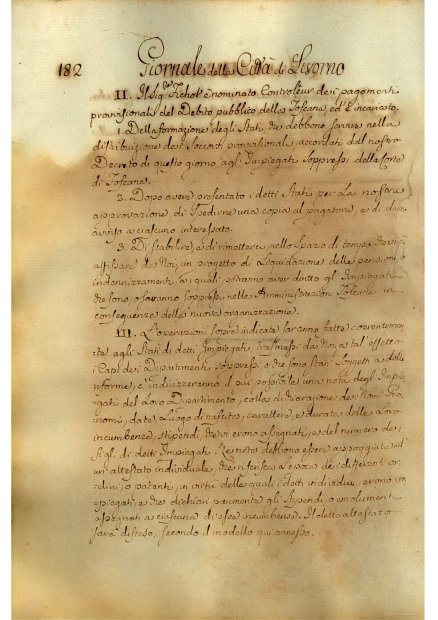 182 Giornale della Città di Livorno
II. Il Sig.re Tichol è nominato Controleur dei pagamenti
provvisionali del Debito pubblico della Toscana, ed è incaricato.
1. Della formazione degli Stati, che debbono servire nella
distribuzione dei Soccorsi provvisionali accordati dal nostro
Decreto di questo giorno agli Impiegati soppressi della Corte
di Toscana.
2. Dopo avere presentato i detti Stati per la nostra
approvazione, di spedirne una copia al pagatore, e di dare
avviso a ciascuno interessato.
3. Di stabilire, e di rimetterci, nello spazio di tempo che sia
fissare da Noi, un progetto di Liquidazione delle pensioni, o
indennizzamenti, ai quali potranno aver diritto gl'Impiegati
che sono, o saranno soppressi nelle Amministrazioni Toscane in
conseguenza della nuova organizzazione.
III. L'operazioni sopra indicate saranno fatte
agli Stati di detti Impiegati, trasmessi da Noi a tal effetto
i Capi dei Dipartimenti soppressi, o che sono stati soggetti a delle
riforme, c'indirizzeranno il più possibile una nota degl'Impie-
gati del Loro Dipartimento, colla dichiarazione dei Nomi, Pro-
nomi, data, Luogo di nascita, carattere, e durata delle Loro
incumbenze, stipendi, che vi erano assegnati, e del numero dei
figli di detti Impiegati. Le note debbono essere appoggiate ad
un'attestato individuale, che riferisca l'epoca dei differenti or-
dini, o patenti, in virtù delle quali i detti individui erano im-
piegati, e che dichiari parimente gli stipendi, o emolumenti
assegnati a ciascuna di esse incumbenze. Il detto attestato
sarà disteso, secondo il modello qui annesso.